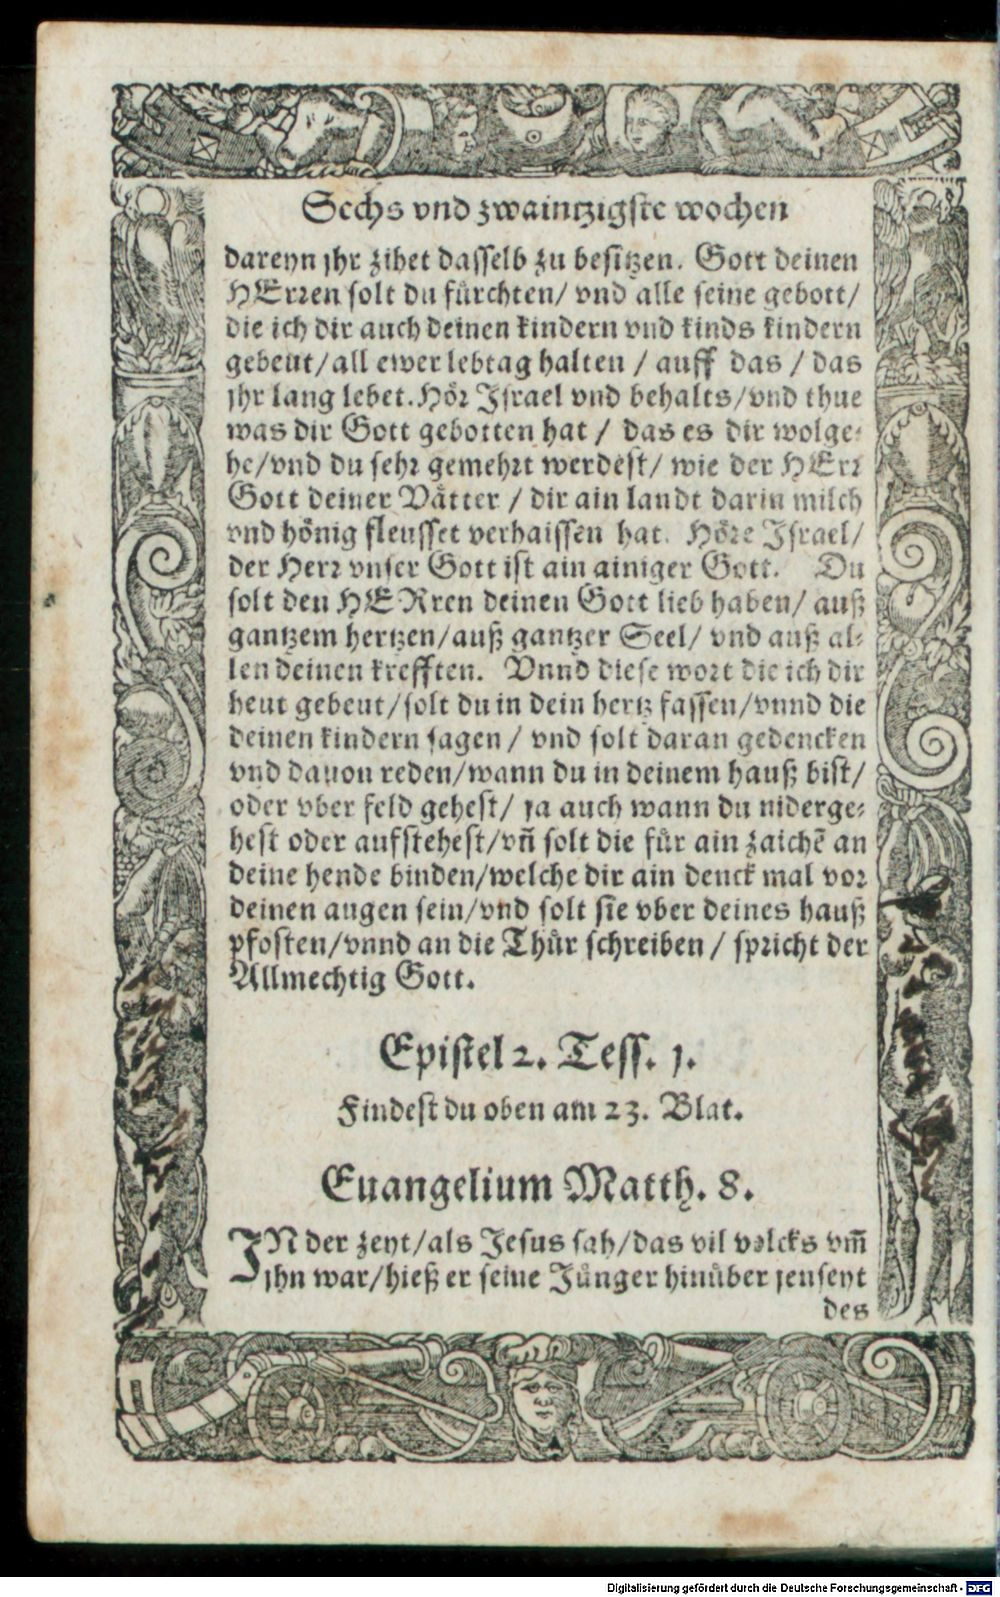 Sechs vnd zwaintzigste wochen
dareyn jhr zihet dasselb zu besitzen. Gott deinen
HErren solt du fürchten/ vnd alle seine gebott/
die ich dir auch deinen kindern vnd kinds kindern
gebeut/all ewer lebtag halten / auff das / das
jhr lang lebet. Hör Jsrael vnd behalts/vnd thue
was dir Gott gebotten hat / das es dir wolge-
he/vnd du sehr gemehrt werdest/ wie der HErr
Gott deiner Vätter / dir ain landt darin milch
vnd hönig fleusset verhaissen hat. Höre Jsrael/
der Herr vnser Gott ist ain ainiger Gott. Du
solt den HERren deinen Gott lieb haben/ auß
gantzem hertzen/auß gantzer Seel/ vnd auß al-
len deinen krefften. Vnnd diese wort die ich dir
heut gebeut/solt du in dein hertz fassen/vnnd die
deinen kindern sagen / vnd solt daran gedencken
vnd dauon reden/wann du in deinem hauß bist/
oder vber feld gehest/ ja auch wann du niderge-
hest oder aufstehest/vñ solt die für ain zaichẽ an
deine hende binden/welche dir ain denck mal vor
deinen augen sein/vnd solt sie vber deines hauß
pfosten/vnnd an die Thür schreiben / spricht der
Allmechtig Gott.
Epistel 2. Tess. j.
Findest du oben am 23. Blat.
Euangelium Matth. 8.
JN der zeyt/als Jesus sah/das vil volcks vm̃
jhn war/hieß er seine Jünger hinüber jenseyt
des
Digitalisierung gefördert durch die Deutsche Forschungsgemeinschaft - DFG